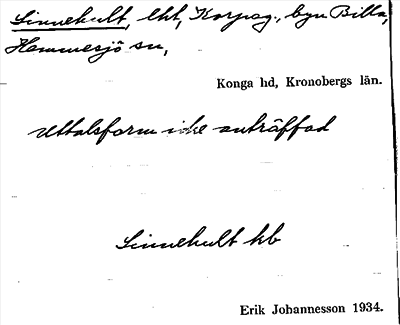 Linnekult, lht, Korpag., byn Billa,
Hemmesjö sn,
Konga hd, Kronobergs län.
Uttalsform icke anträffad
Linnekult kb
Erik Johannesson 1934.